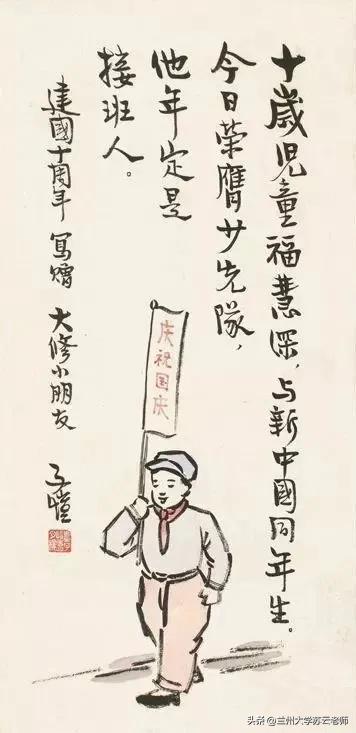 十歲児童福慧深，与新中國同年生。
今日荣膺少先隊，
他年定是
接班人。
建國十周年 寫贈 大修小朋友 子愷
庆祝国庆
头条 @兰州大学苏云老师